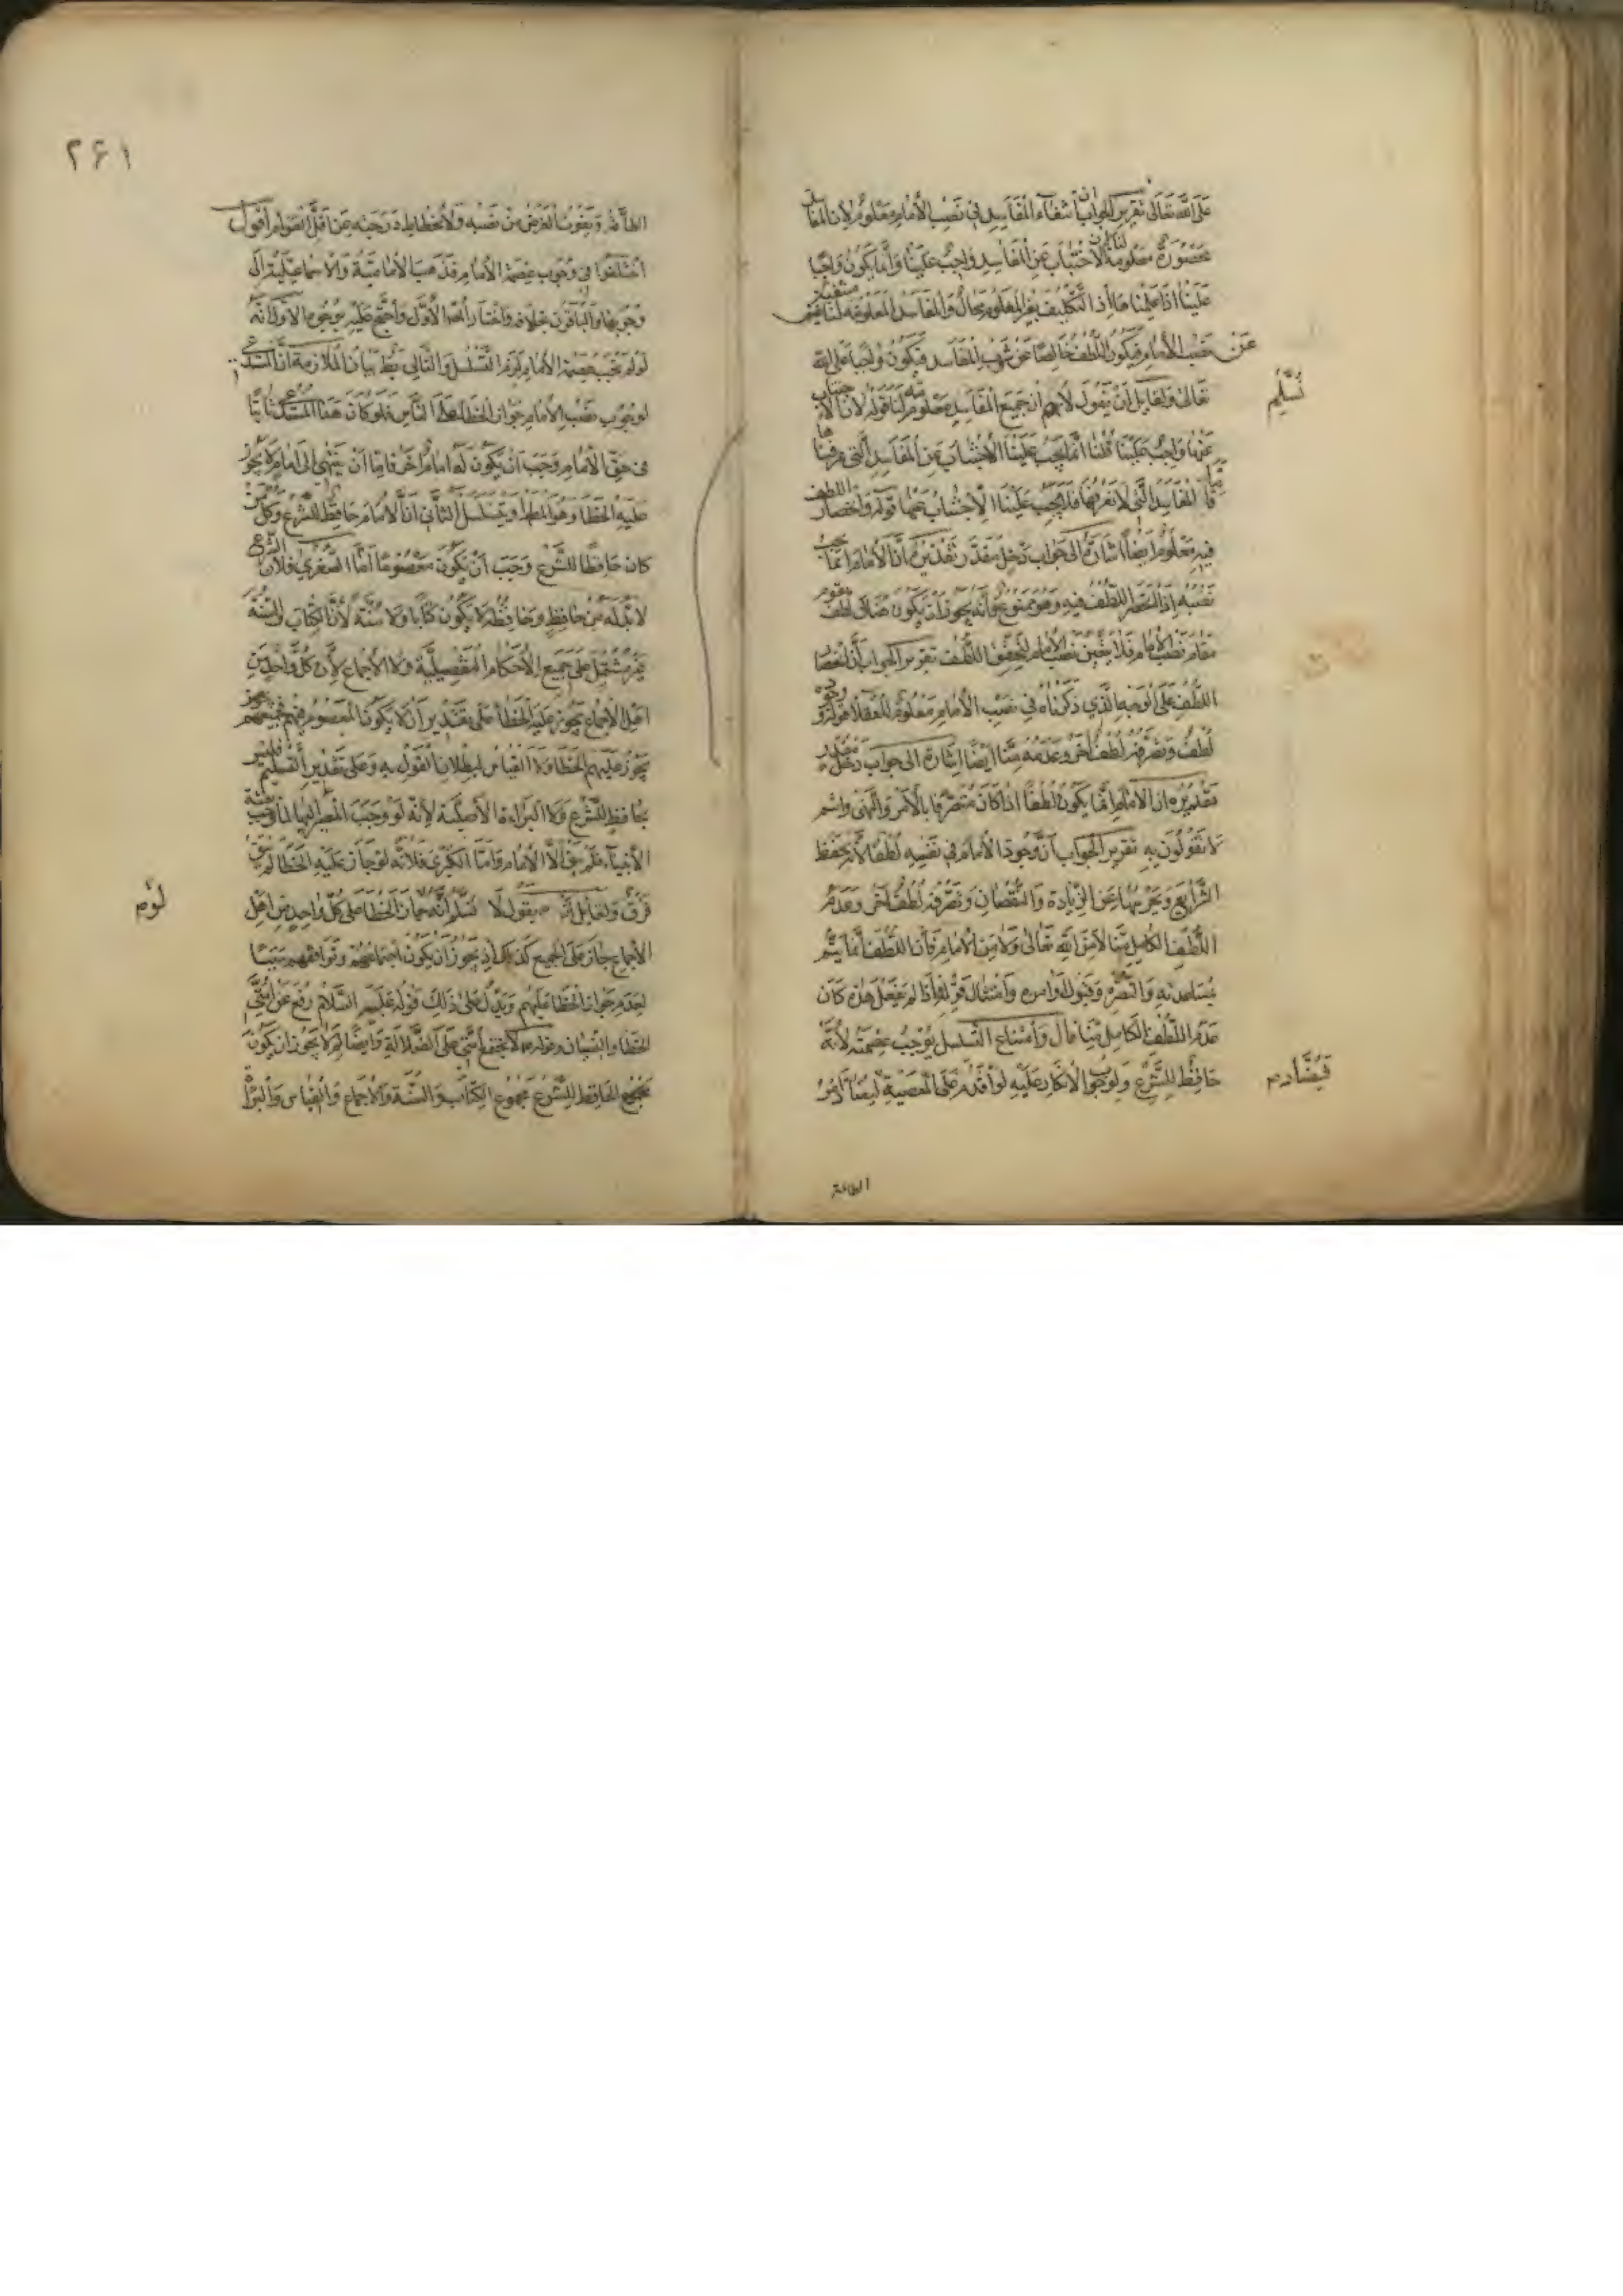 على الله تعالى تقرير الجواب ان انتفاء المفاسد في نصب الامام معلوم لان المفاسد
محصورة معلومة لنا لان الاجتناب عن المفاسد واجب علينا وانما يكون واجبا
علينا اذا علمناها اذ التكليف بغير المعلوم محال والمفاسد المعلومة لنا منتفية
عن نصب الامام فيكون اللطف خالصا عن شوب المفاسد فيكون واجبا على الله
تعالى ولقايل ان يقول لا نم ان جميع المفاسد معلومة لنا قوله لان الاجتناب
نسلم
عنها واجب علينا قلنا انما يجب علينا الاجتناب عن المفاسد التي عرفناها
فاما المفاسد التي لا نعرفها فلا يجب علينا الاجتناب عنها قوله وانحصار اللطف
فيه معلوم ايضا اشارة الى جواب دخل مقدر تقديره ان الامام انما يجب
نصبه اذا انحصر اللطف فيه وهو ممنوع فانه يجوز ان يكون هناك لطف يقوم
مقام نصب الامام فلا يتعين نصب الامام لتحقق اللطف تقرير الجواب ان انحصار
اللطف على الوجه الذي ذكرناه في نصب الامام معلوم للعقلا قوله وجوده
لطف وتصرفه لطف اخر وعدمه منا ايضا اشارة الى جواب دخل مقدر
تقديره ان الامام انما يكون لطفا اذا كان متصرفا بالامر والنهي وانتم
لا تقولون به تقرير الجواب ان وجود الامام في نفسه لطف لانه يحفظ
الشرايع ويحرسها عن الزيادة والنقصان وتصرفه لطف اخر وعدم
اللطف الكامل منا لا من الله تعالى ولا من الامام فان اللطف انما يتم
بمساعدته والنصرة وقبول اوامره وامتثال قوله فاذا لم يفعل هذه كان
عدم اللطف الكامل منا قال وامتناع التسلسل يوجب عصمته لانه
حافظ للشرع ولوجوب الانكار عليه لو اقدم على المعصية فيضاد امر
فيضاد م
الطاعة
٢٦١
الطاعة ويفوت الغرض من نصبه ولانحطاط درجته عن اقل العوام اقول
اختلفوا في وجوب عصمة الامام فذهب الامامية والاسماعيلية الى
وجوبها والباقون بخلافه واختار المص الاول واحتج عليه بوجوه الاول انه
لو لم يجب عصمة الامام لزم التسلسل والتالي بط بيان الملازمة ان المستدعي
لوجوب نصب الامام جواز الخطا على الناس فلو كان هذا المستدعي ثابتا
في حق الامام وجب ان يكون له امام اخر فاما ان ينتهي الى امام لا يجوز
عليه الخطا وهو المط او يتسلسل الثاني ان الامام حافظ للشرع وكل من
كان حافظا للشرع وجب ان يكون معصوما اما الصغرى فلان الشرع
لا بد له من حافظ وحافظه لا يكون كتابا ولا سنة لان الكتاب والسنة
غير مشتمل على جميع الاحكام التفصيلية ولا الاجماع لان كل واحد من
اهل الاجماع يجوز عليه الخطا على تقدير ان لا يكون المعصوم فيهم فجميعهم
يجوز عليهم الخطا ولا القياس لبطلان القول به وعلى تقدير التسليم فليس
بحافظ للشرع ولا البراءة الاصلية لانه لو وجب المصير اليها لما وجب بعثة
الانبياء فلم يبق الا الامام واما الكبرى فلانه لو جاز عليه الخطا لم يبق
فرق ولقايل ان يقول لا نسلم انه لو جاز الخطا على كل واحد من اهل
لو م
الاجماع جاز على الجميع كذلك اذ يجوز ان يكون اجتماعهم وتوافقهم سببا
لعدم جواز الخطا عليهم ويدل على ذلك قوله عليه السلام رفع عن امتي
الخطا والنسيان وقوله لا تجتمع امتي على الضلالة وايضا لم لا يجوز ان يكون
الحافظ للشرع مجموع الكتاب والسنة والاجماع والقياس والبراءة